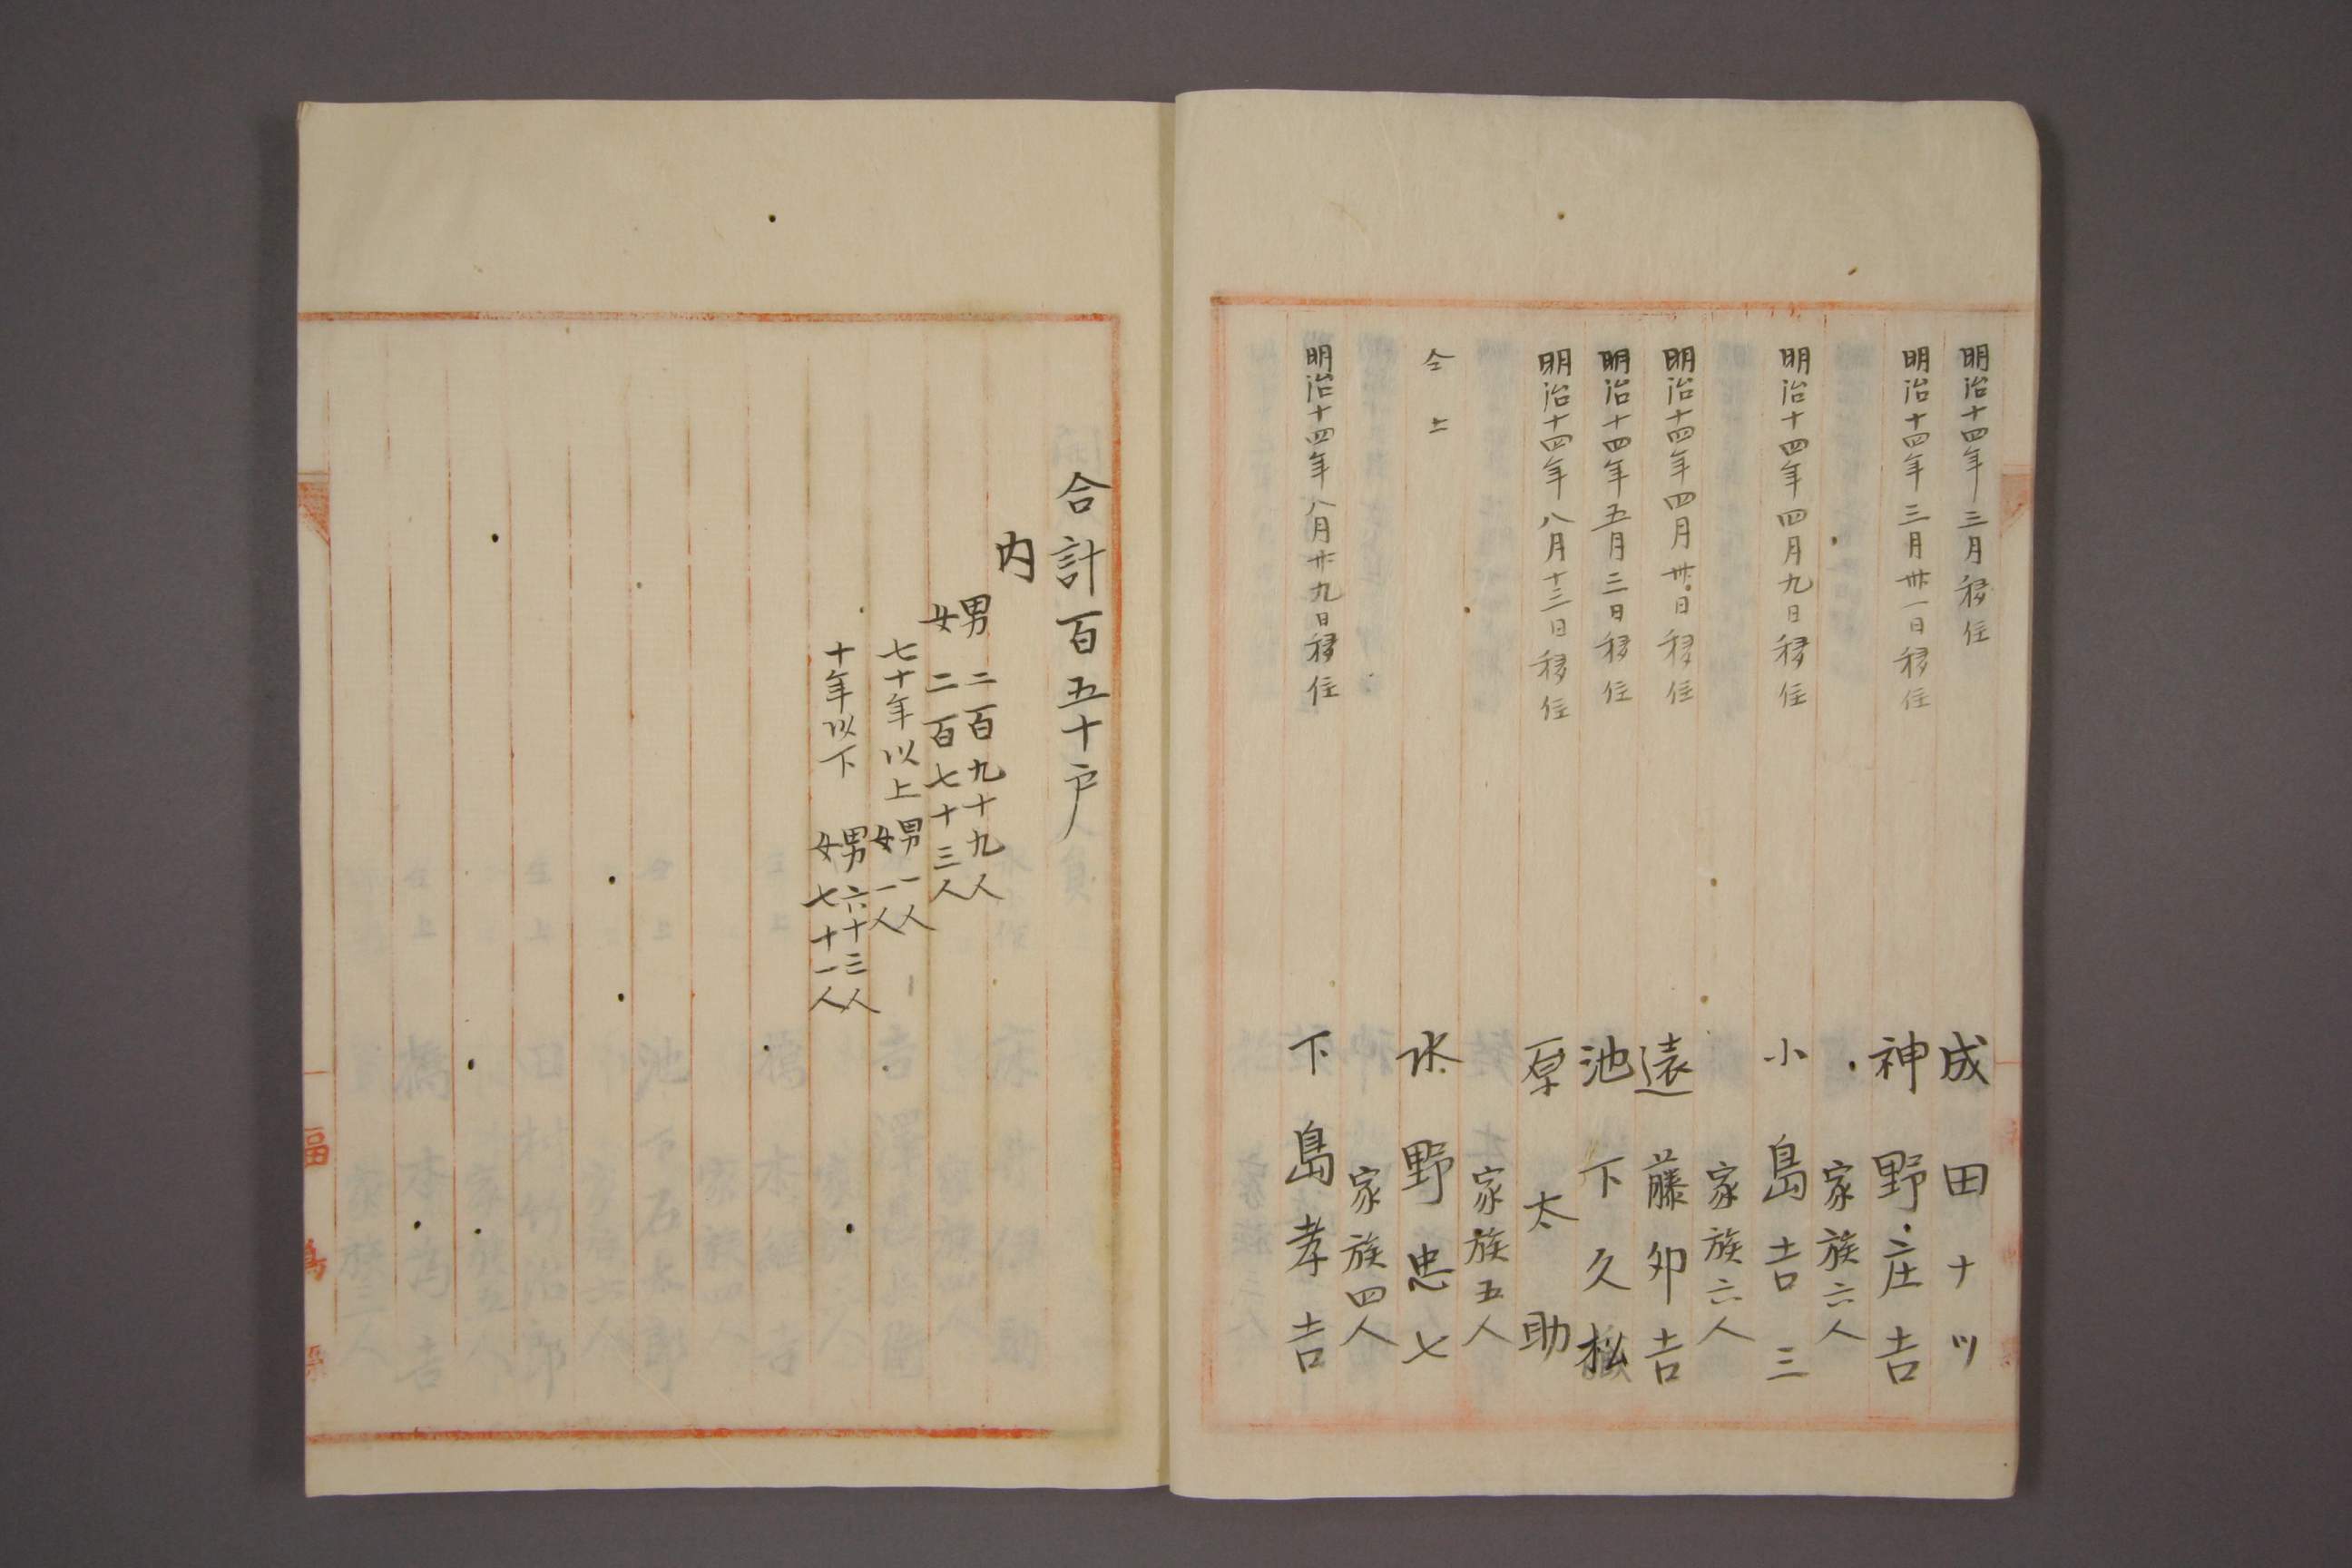 明治十四年三月移住
成田ナツ
明治十四年三月卅一日移住
神野庄吉
家族六人
明治十四年四月九日移住
小島吉三
家族六人
明治十四年四月卅日移住
遠藤卯吉
明治十四年五月三日移住
池下久松
明治十四年八月十三日移住
原太助
家族五人
仝上
水野忠七
家族四人
明治十四年八月廿九日移住
下島孝吉
合計百五十戸
内
男二百九十九人
女二百七十三人
七十年以上
男一人
女一人
十年以下
男六十三人
女七十一人
福島縣